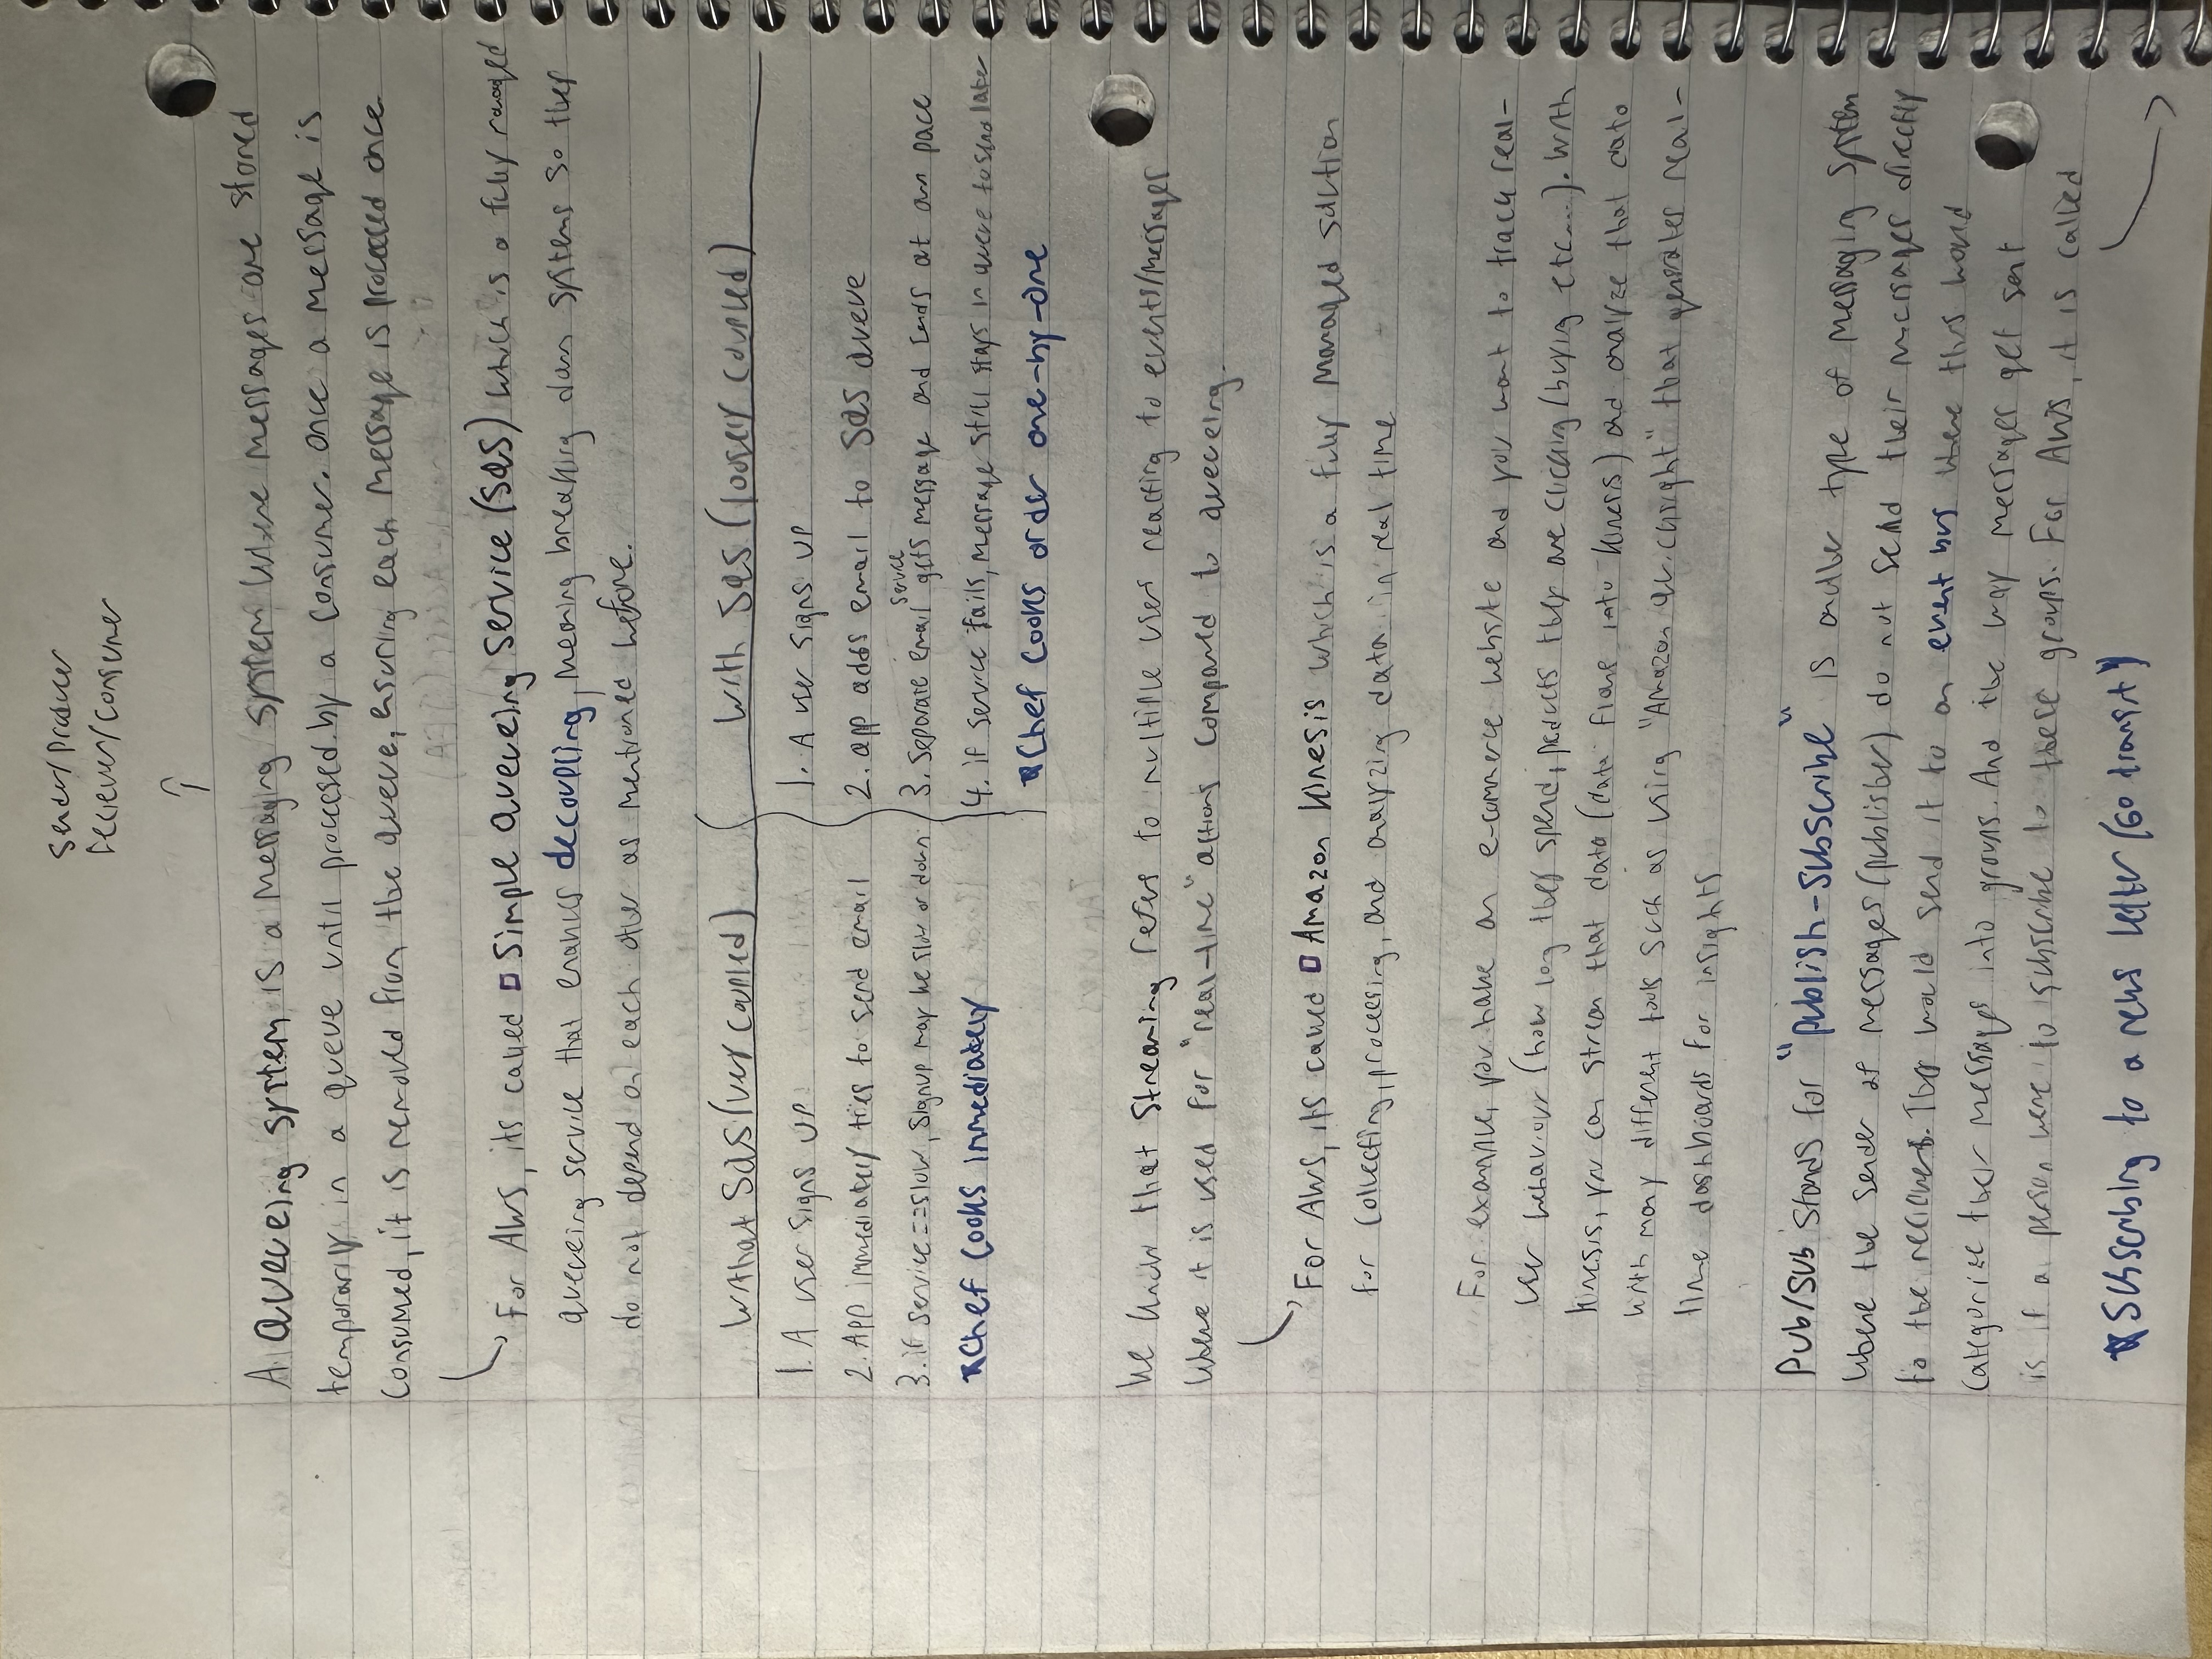 Sender/Producer
reciever/Consumer
A Queueing system is a messaging system where messages are stored
temporarily in a queue until processed by a consumer. once a message is
consumed, it is removed from the queue, ensuring each message is processed once
For AWS, its called Simple Queueing Service (SQS) which is a fully managed
queueing service that enables decoupling, meaning breaking down systems so they
do not depend on each other as mentioned before.
Without SQS (very coupled)
1. A user signs up
2. App immediately tries to send email
3. if service == slow, signup may be slow or down
*Chef Cooks immediately
With SQS (loosely coupled)
1. A user signs up
2. app adds email to SQS queue
3. Separate email service gets message and sends at own pace
4. if service fails, message still stays in queue to send later
*Chef Cooks order one-by-one
We know that streaming refers to multiple users reacting to events/messages
where it is used for "real-time" actions compared to queueing.
For AWS, its called Amazon Kinesis which is a fully managed solution
for collecting, processing, and analyzing data in real time
For example, you have an e-commerce website and you want to track real-
user behaviour (how long they spend, products they are clicking/buying etc...). With
Kinesis, you can stream that data (data flows into kinesis) and analyze that data
with many different tools such as using "Amazon quicksight" that generates real-
time dashboards for insights
Pub/Sub stands for "publish-subscribe" is another type of messaging system
where the sender of messages (publisher) do not send their messages directly
to the recievers. They would send it to an event bus where this would
categorize their messages into groups. And the way messages get sent
is if a person were to subscribe to these groups. For AWS, it is called
*Subscribing to a news letter (Go transit)